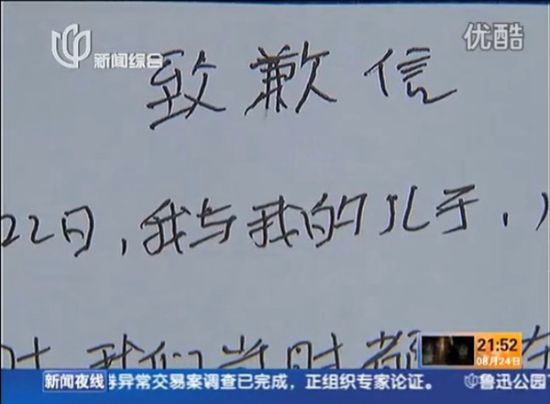 新闻综合
优酷
致歉信
22日，我与我的儿子，
我们当时都
21:52
08月24日
新闻夜线
券异常交易案调查已完成，正组织专家论证。
鲁迅公园